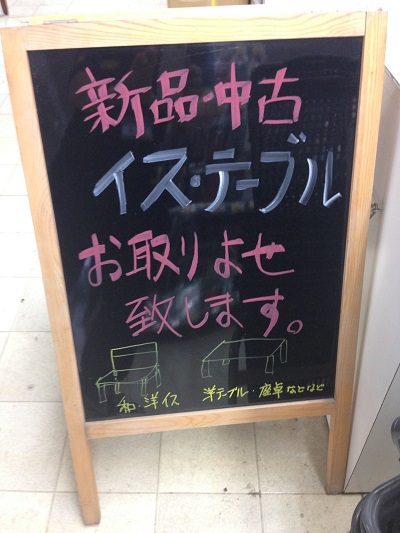 新品・中古
イス・テーブル
お取りよせ
致します。
和・洋イス 洋テーブル・座卓などなど